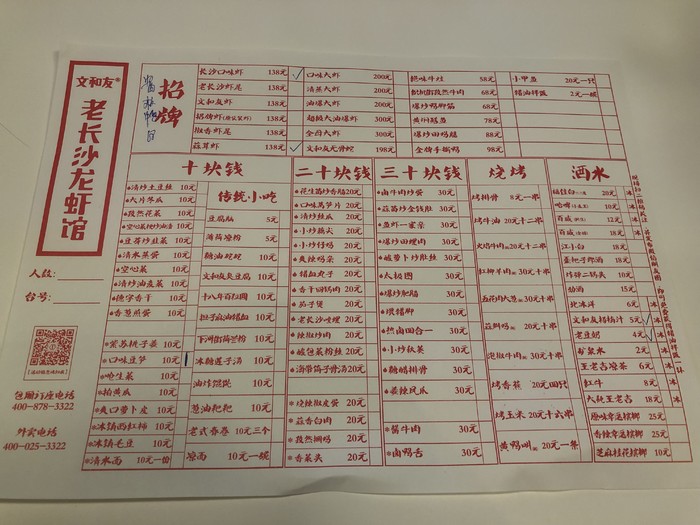 文和友®
老长沙龙虾馆
人数:
台号:
包厢订座电话
400-878-3322
外卖电话
400-025-3322
招牌
长沙口味虾 138元
老长沙虾尾 138元
文和友虾 138元
招牌虾 138元
椒香虾尾 138元
蒜茸虾 138元
口味大虾 200元
清蒸大虾 200元
油爆大虾 200元
超级大油爆虾 300元
全母大虾 300元
文和友龙骨髓 198元
58元
68元
爆炒鸭脚筋 68元
贵州鹅蛋 78元
爆炒田鸡腿 88元
全牌手撕鸭 98元
小甲鱼 20元一只
猪油拌饭 2元一碗
十块钱
清炒土豆丝 10元
大片冬瓜 10元
孜然花菜 10元
10元
豆豉炒韭菜 10元
清水蒸蛋 10元
空心菜 10元
清炒油麦菜 10元
德字香干 10元
香葱煎蛋 10元
紫苏桃子姜 10元
口味豆笋 10元
呛生菜 10元
拍黄瓜 10元
爽口萝卜皮 10元
冰镇西红柿 10元
冰镇毛豆 10元
清水面 10元一份
传统小吃
豆腐脑 5元
薄荷凉粉 5元
糖油坨坨 10元
文和友臭豆腐 10元
十八子百粒圆 10元
担子麻油猪血 10元
下河街捣芒粉 10元
冰糖莲子汤 10元
油炸馄饨 10元
葱油粑粑 10元
老式春卷 10元三个
凉面 10元一碗
二十块钱
花菇蒜炒香肠 20元
口味莴笋片 20元
清炒丝瓜 20元
小炒藕尖 20元
小炒仔鸡 20元
爽辣鸡杂 20元
猪血丸子 20元
香干回锅肉 20元
茄子煲 20元
老长沙哇哩 20元
辣椒炒肉 20元
嘘包菜粉丝 20元
汤带筒子骨汤 20元
烧辣椒皮蛋 20元
蒜香白肉 20元
孜然烤鸡 20元
香菜头 20元
三十块钱
卤牛肉炒蛋 30元
蒜苗炒金钱肚 30元
鱼虾一家亲 30元
爆炒田螺肉 30元
酸萝卜炒肚丝 30元
太极图 30元
爆炒肥肠 30元
嗦猪脚 30元
热卤四合一 30元
小炒秋葵 30元
糖醋排骨 30元
姜辣凤爪 30元
酱牛肉 30元
卤鸭舌 30元
烧烤
烤排骨 8元一串
烤牛油 20元十二串
火焰牛肉 20元十二串
红柳羊肉 30元十串
五花肉大葱 30元十串
蒜鲜鸡 20元十串
泡椒牛肉 30元十串
烤香蕉 20元四只
烤玉米 20元十六串
黄鸭叫 20元一条
酒水
福佳白 20元 冰
哈啤 10元 冰
百威 12元 冰
百威 20元 冰
江小白 18元
歪把子郎酒 20元
炸弹二锅头 10元
劲酒 15元
北冰洋 6元 冰
文和友酸梅汁 5元
老豆奶 4元
矿泉水 2元 冰
王老吉凉茶 6元 冰
红牛 8元
大瓶王老吉 18元 冰
原味幸运槟榔 25元
香辣幸运槟榔 25元
芝麻桂花槟榔 10元